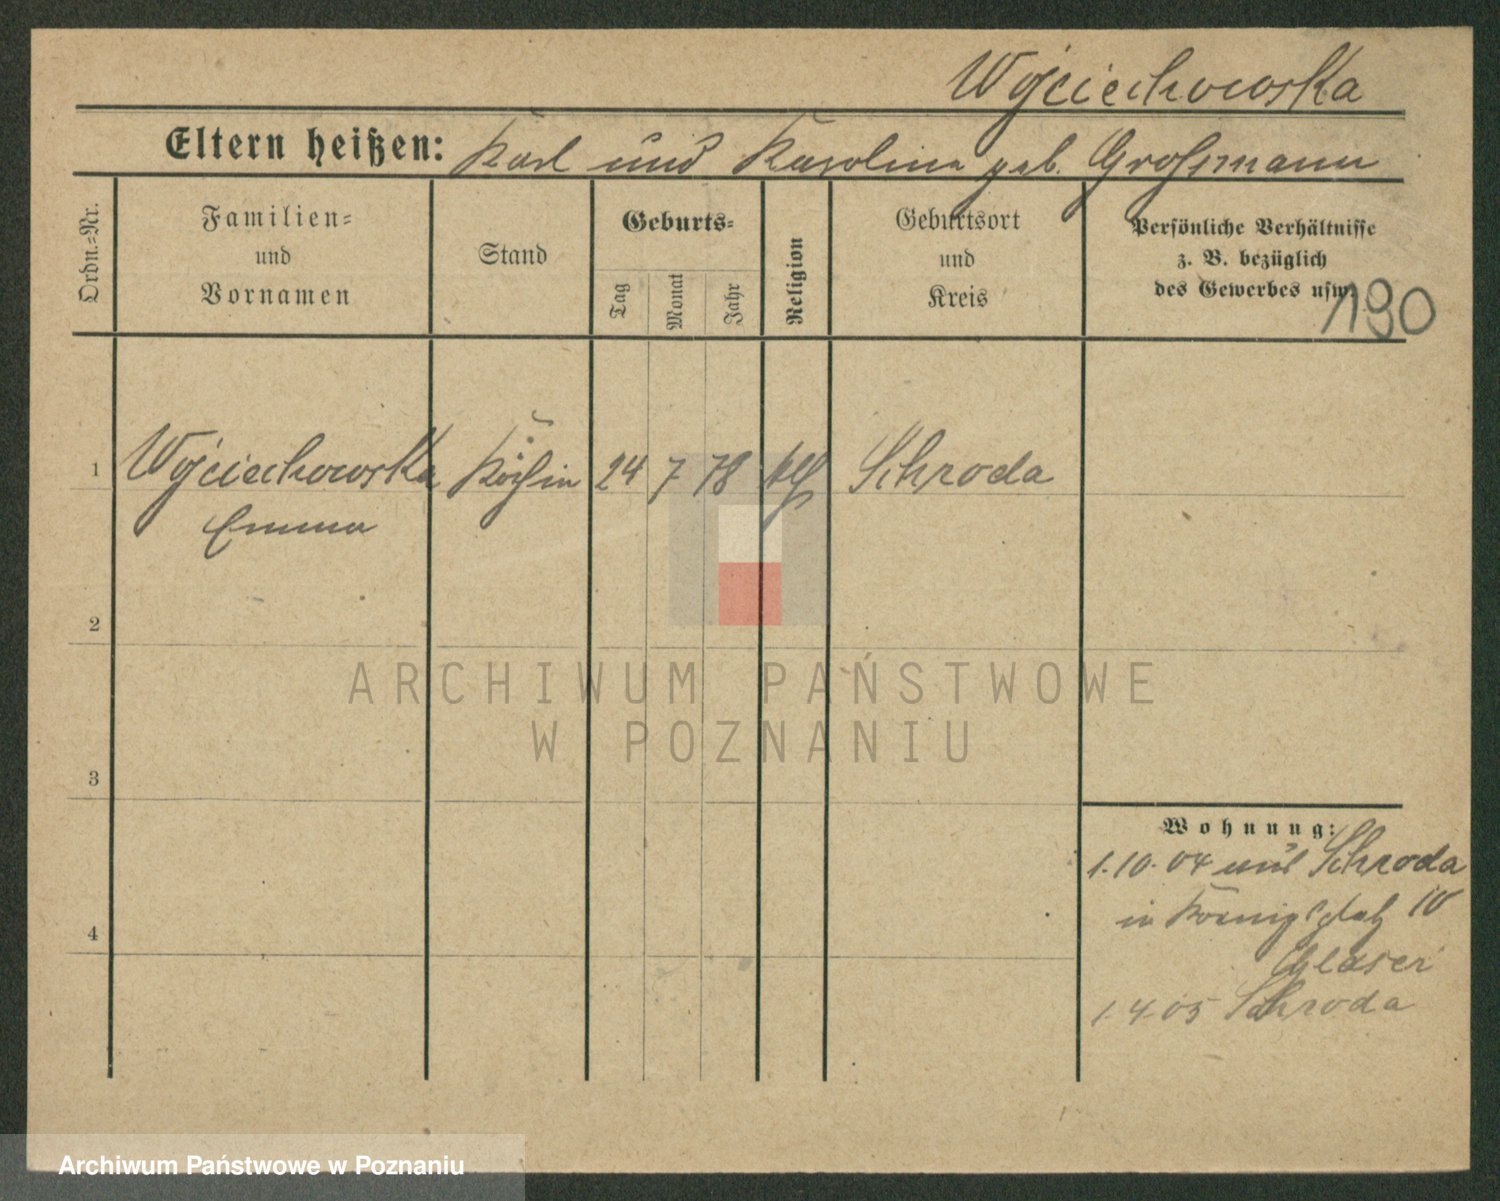 Wojciechowska
Eltern heißen: Karl und Karolina geb. Großmann
Ordn.=Nr.
Familien=
und
Vornamen
Stand
Geburts=
Tag
Monat
Jahr
Religion
Geburtsort
und
Kreis
Persönliche Verhältnisse
z. B. bezüglich
des Gewerbes usw.
190
1 Wojciechowska Köchin 24 7 78 kth Schroda
Emma
2
3
4
Wohnung:
1.10.04 aus Schroda
in Königsplatz 10
Glaser
1.4.05 Schroda
ARCHIWUM PAŃSTWOWE
W POZNANIU
Archiwum Państwowe w Poznaniu